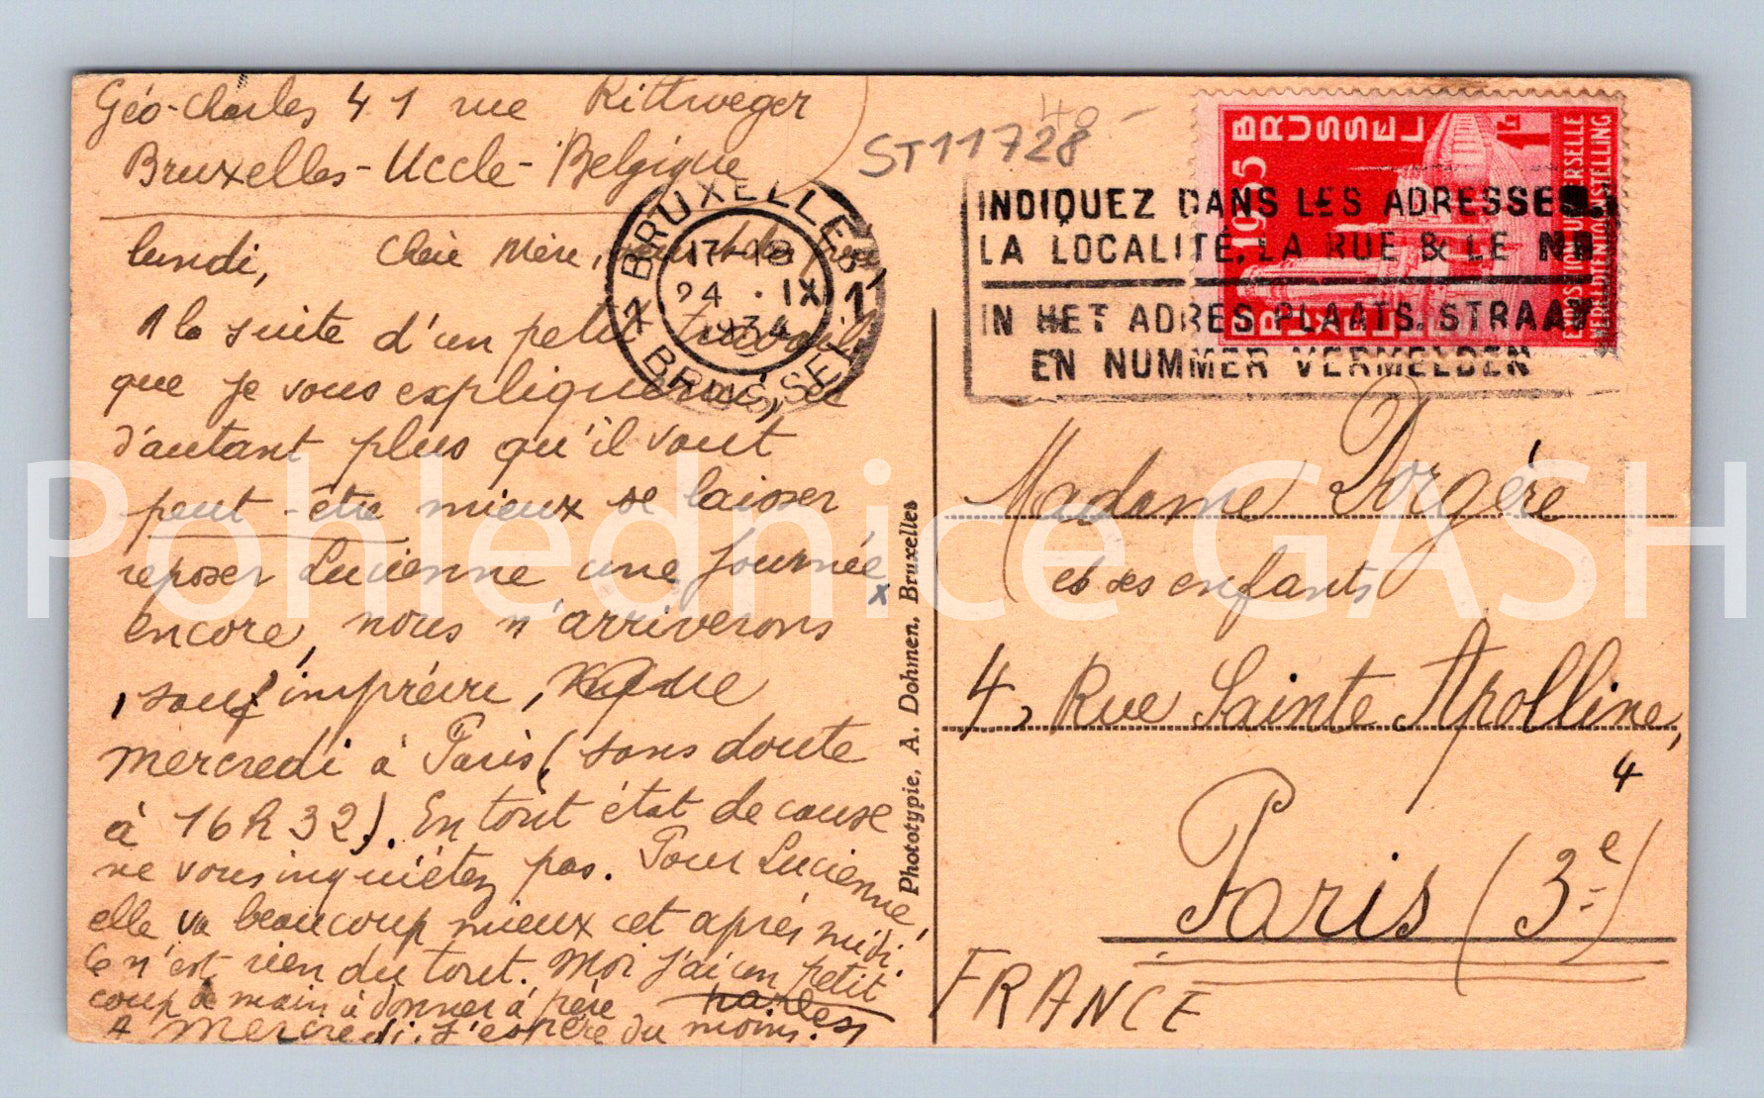 Géo-Charles 41 rue Rittweger
Bruxelles-Uccle-Belgique
lundi, Chère Mère,
A la suite d'un petit travail
que je vous expliquerai, et
d'autant plus qu'il vaut
peut-être mieux se laisser
reposer Lucienne une journée
x
encore, nous n'arriverons
, sauf imprévu, que
mercredi à Paris (sans doute
à 16 h 32). En tout état de cause
ne vous inquiétez pas. Pour Lucienne
elle va beaucoup mieux cet après midi.
Ce n'est rien du tout. Moi j'ai un petit
coup de main à donner à père
A Mercredi. J'espère du moins.
Phototypie, A. Dohmen, Bruxelles
40 -
ST11728
BRUXELLES 1
17-18
24 . IX
1934
1 BRUSSEL
INDIQUEZ DANS LES ADRESSES.
LA LOCALITÉ, LA RUE & LE NO
IN HET ADRES PLAATS, STRAAT
EN NUMMER VERMELDEN
BRUSSEL
1935
BRUXELLES
1 Fr
EXPOSITION UNIVERSELLE
WERELDTENTOONSTELLING
Madame Dorgère
et ses enfants
4, Rue Sainte Apolline,
4
Paris (3e)
FRANCE
Pohlednice GASH